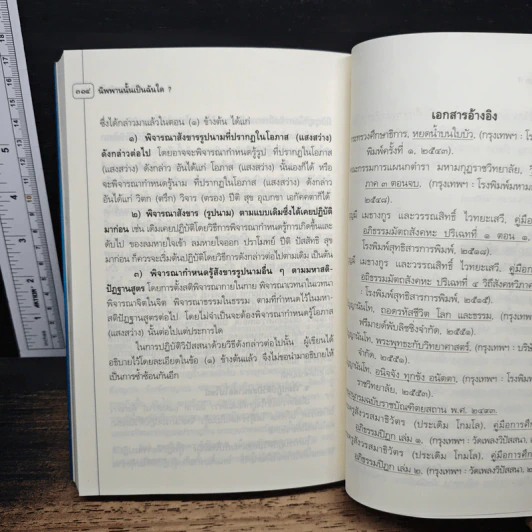 ๓๑๔ นิพพานนั้นเป็นฉันใด ?
ซึ่งได้กล่าวมาแล้วในตอน (๑) ข้างต้น ได้แก่
๑) พิจารณาสังขารรูปนามที่ปรากฏในโอภาส (แสงสว่าง)
ดังกล่าวต่อไป โดยอาจจะพิจารณากำหนดรู้รูป ที่ปรากฏในโอภาส
(แสงสว่าง) ดังกล่าว อันได้แก่ โอภาส (แสงสว่าง) นั้นเองก็ได้ หรือ
จะพิจารณากำหนดรู้นาม ที่ปรากฏในโอภาส (แสงสว่าง) ดังกล่าว
อันได้แก่ วิตก (ตรึก) วิจาร (ตรอง) ปีติ สุข อุเบกขา เอกัคคตาก็ได้
๒) พิจารณาสังขาร (รูปนาม) ตามแบบเดิมซึ่งได้เคยปฏิบัติ
มาก่อน เช่น เดิมเคยปฏิบัติโดยวิธีการพิจารณากำหนดรู้การเกิดขึ้นและ
ดับไป ของลมหายใจเข้า ลมหายใจออก ปราโมทย์ ปีติ ปัสสัทธิ สุข
มาก่อน ก็ควรจะเริ่มต้นปฏิบัติโดยวิธีการดังกล่าวต่อไปตามเดิม เป็นต้น
๓) พิจารณากำหนดรู้สังขารรูปนามอื่น ๆ ตามมหาสติ-
ปัฏฐานสูตร โดยการตั้งสติพิจารณากายในกาย พิจารณาเวทนาในเวทนา
พิจารณาจิตในจิต พิจารณาธรรมในธรรม ตามที่กำหนดไว้ในมหา-
สติปัฏฐานสูตรต่อไป โดยไม่จำเป็นจะต้องพิจารณากำหนดรู้โอภาส
(แสงสว่าง) นั้นต่อไปแต่ประการใด
ในการปฏิบัติวิปัสสนาด้วยวิธีดังกล่าวต่อไปนั้น ผู้เขียนได้
อธิบายไว้โดยละเอียดในข้อ (๑) ข้างต้นแล้ว จึงไม่ขอนำมาอธิบายให้
เป็นการซ้ำซ้อนกันอีก
เอกสารอ้างอิง
กระทรวงศึกษาธิการ, หยดน้ำบนใบบัว, (กรุงเทพฯ : โรง
พิมพ์ครั้งที่ ๑, ๒๕๔๓).
กรรมการแผนกตำรา มหามกุฏราชวิทยาลัย,
ภาค ๓ ตอนจบ, (กรุงเทพฯ : โรงพิมพ์มหาม
๒๕๔๘).
เมชางกูร และวรรณสิทธิ์ ไวทยะเสวี, คู่มือ
อภิธรรมมัตถสังคหะ ปริเฉทที่ ๑ ตอน ๑,
โรงพิมพ์สุทธิสารการพิมพ์, ๒๕๑๔).
เมชางกูร และวรรณสิทธิ์ ไวทยะเสวี, คู่มือ
อภิธรรมมัตถสังคหะ ปริเฉทที่ ๔ วิถีสังคหวิภาค
โรงพิมพ์สุทธิสารการพิมพ์, ๒๕๑๕).
ญาณันโท, ถอดรหัสชีวิต โลก และธรรม, (กรุงเทพฯ
พรีมายด์พับลิชชิง จำกัด, ๒๕๕๑).
ญาณันโท, พระพุทธะกับวิทยาศาสตร์, (กรุงเทพฯ : บริษั
จำกัด, ๒๕๕๑).
ญาณันโท, อนิจจัง ทุกขัง อนัตตา, (กรุงเทพฯ : โรงพิม
ราชวิทยาลัย, ๒๕๕๓).
ฉบับราชบัณฑิตยสถาน พ.ศ. ๒๔๙๓.
วรสมาธิวัตร (ประเดิม โกมโล), คู่มือการศึ
อภิธรรมปิฎก เล่ม ๑, (กรุงเทพฯ : วัดเพลงวิปัสสนา, ๒
วรสมาธิวัตร (ประเดิม โกมโล), คู่มือการศึ
อภิธรรมปิฎก เล่ม ๒, (กรุงเทพฯ : วัดเพลงวิปัสสนา,